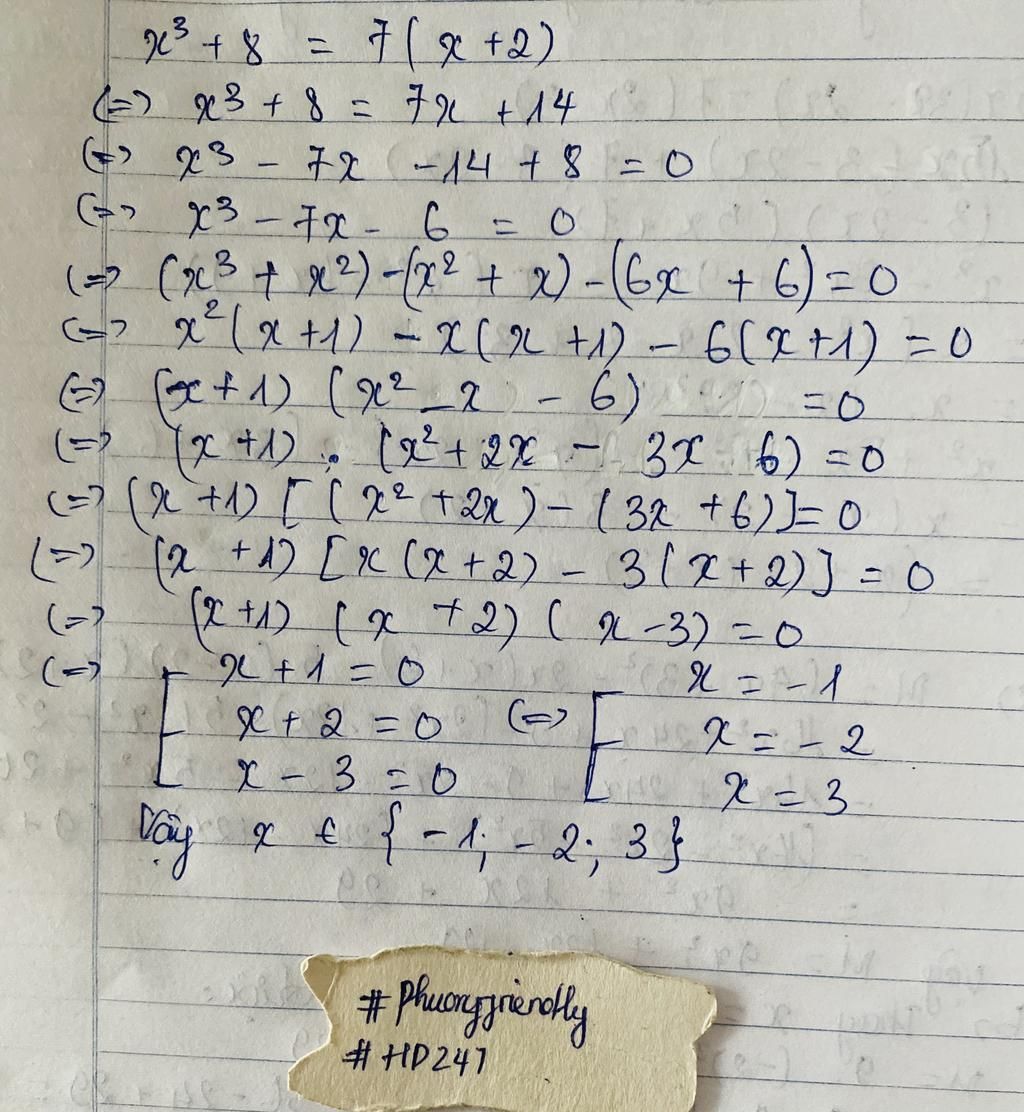 x³ + 8 = 7(x+2)
(=> x³ + 8 = 7x + 14
(=> x³ - 7x - 14 + 8 = 0
(=> x³ - 7x - 6 = 0
(=> (x³ + x²) - (x² + x) - (6x + 6) = 0
(=> x²(x+1) - x(x+1) - 6(x+1) = 0
(=> (x+1) (x² - x - 6) = 0
(=> (x+1) . (x² + 2x - 3x 6) = 0
(=> (x+1) [(x² + 2x) - (3x + 6)] = 0
(=> (x+1) [x(x+2) - 3(x+2)] = 0
(=> (x+1) (x+2) (x-3) = 0
(=> [ x + 1 = 0 x = -1
x + 2 = 0 (=> [ x = -2
x - 3 = 0 x = 3
Vậy x ∈ {-1; -2; 3}
# Phuongfriendly
# HD247